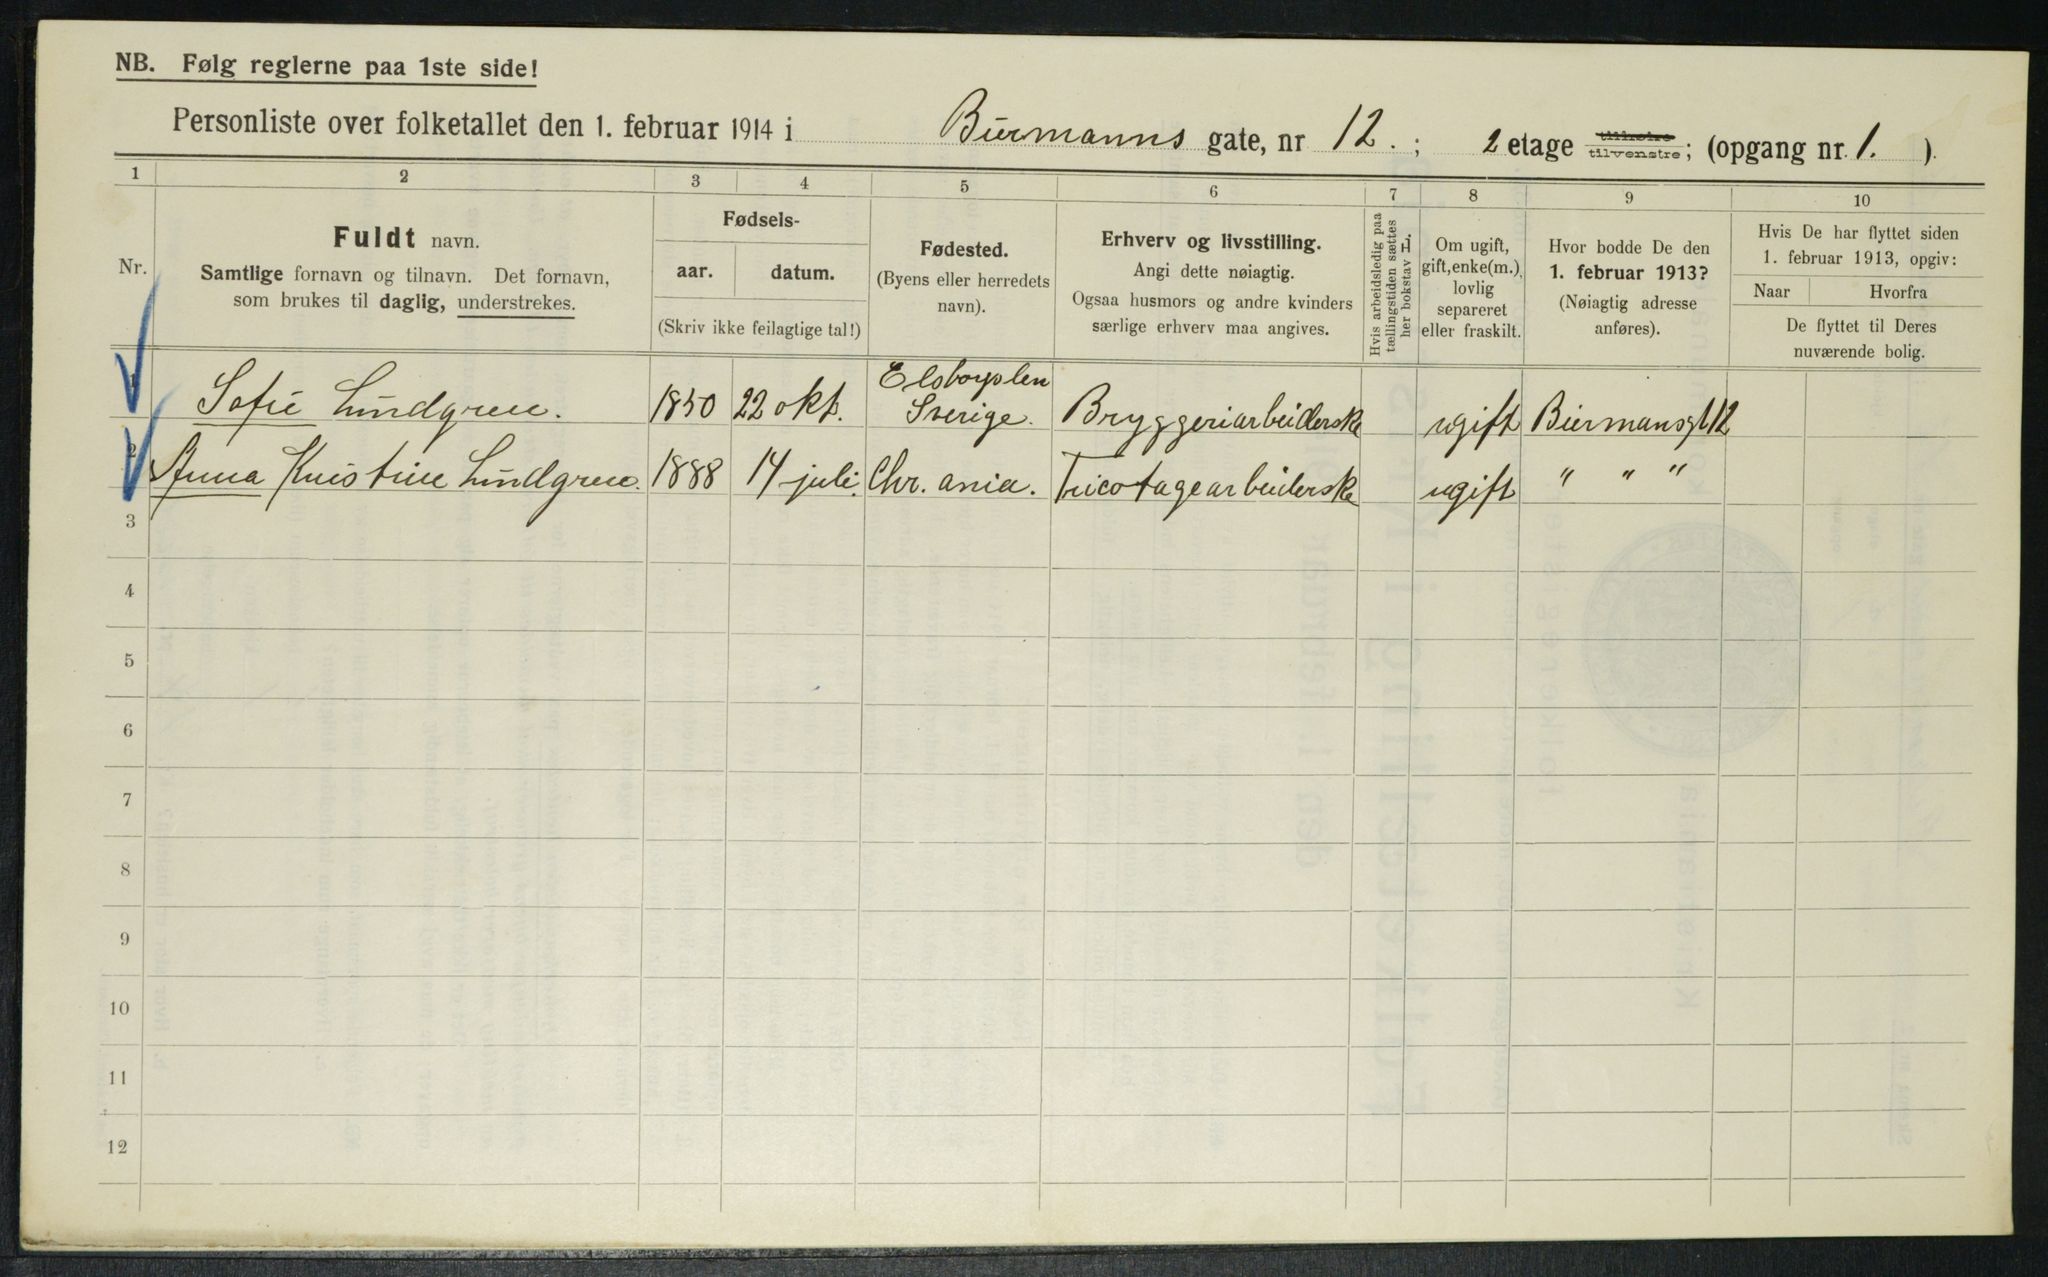 NB. Følg reglerne paa 1ste side!
Personliste over folketallet den 1. februar 1914 i Biermanns gate, nr 12. ; 2 etage tilhøire tilvenstre; (opgang nr. 1. ).
1 2 3 4 5 6 7 8 9 10
Nr.
Fuldt navn.
Samtlige fornavn og tilnavn. Det fornavn,
som brukes til daglig, understrekes.
Fødsels-
aar. datum.
(Skriv ikke feilagtige tal!)
Fødested.
(Byens eller herredets
navn).
Erhverv og livsstilling.
Angi dette nøiagtig.
Ogsaa husmors og andre kvinders
særlige erhverv maa angives.
Hvis arbeidsledig paa
tællingstiden sættes
her bokstav L.
Om ugift,
gift, enke(m.),
lovlig
separeret
eller fraskilt.
Hvor bodde De den
1. februar 1913?
(Nøiagtig adresse
anføres).
Hvis De har flyttet siden
1. februar 1913, opgiv:
Naar Hvorfra
De flyttet til Deres
nuværende bolig.
1 Sofie Lundgren. 1850 22 okt. Sverige. Bryggeriarbeiderske ugift Biermansgt 12
2 Anna Kristine Lundgren. 1888 14 juli. Chr. ania. Tricotagearbeiderske ugift " " "
3
4
5
6
7
8
9
10
11
12